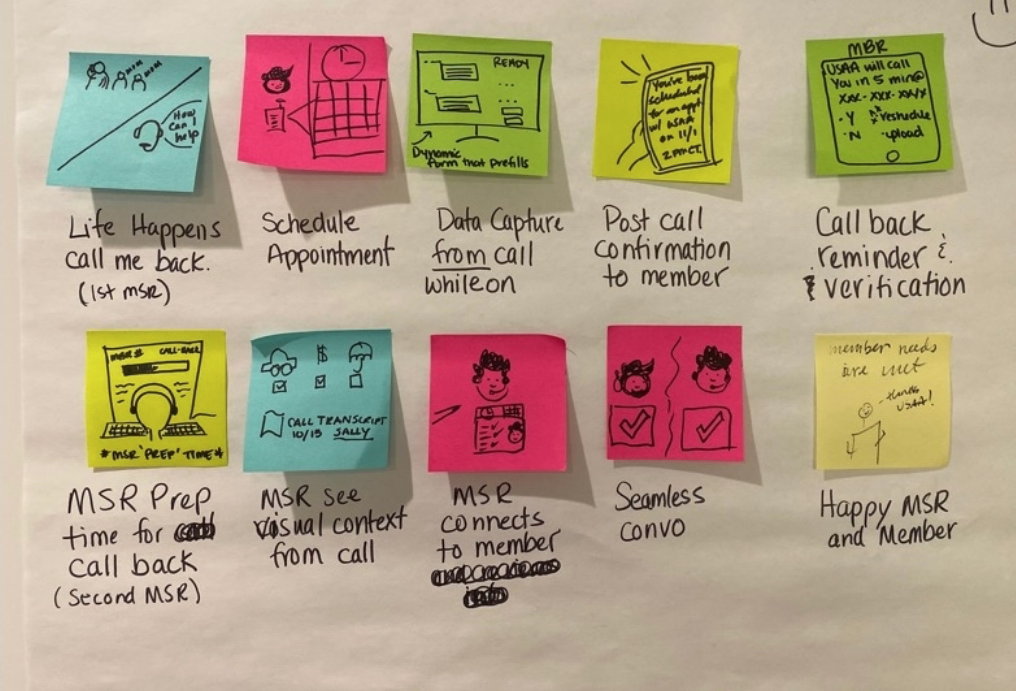 MOM
MOM
How
can I
help
Life Happens
call me back.
(1st MSR)
Schedule
Appointment
READY
Dynamic
form that prefills
Data Capture
from call
while on
You've been
scheduled
for an appt
w/ USAA
on 11/1
2 PM CT.
Post call
confirmation
to member
MBR
USAA will call
You in 5 min @
xxx-xxx-xxxx
· Y
· N
Reshedule
upload
Call back
reminder &
verification
CALL-BACK
* MSR 'PREP' TIME *
MSR Prep
time for
call back
(Second MSR)
$
CALL TRANSCRIPT
10/15 SALLY
MSR see
visual context
from call
MSR
connects
to member
Seamless
convo
member needs
are met
- thanks
USAA!
Happy MSR
and Member